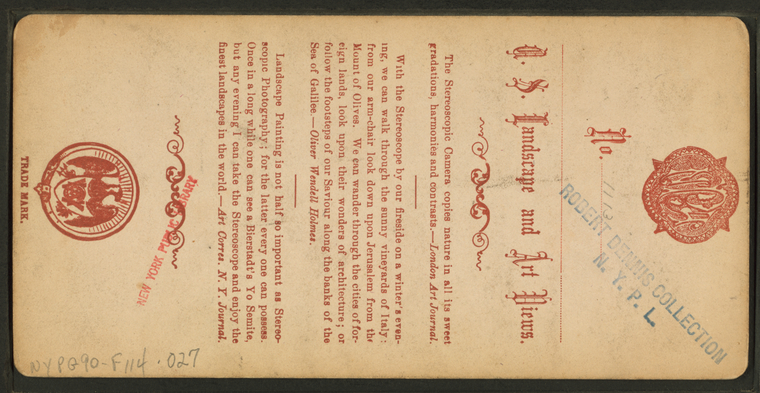 No.
U. S. Landscape and Art Views.
The Stereoscopic Camera copies nature in all its sweet
gradations, harmonies and contrasts.—London Art Journal.
With the Stereoscope by our fireside on a winter's even-
ing, we can walk through the sunny vineyards of Italy;
from our arm-chair look down upon Jerusalem from the
Mount of Olives. We can wander through the cities of for-
eign lands, look upon their wonders of architecture; or
follow the footsteps of our Saviour along the banks of the
Sea of Galilee.—Oliver Wendall Holmes.
Landscape Painting is not half so important as Stereo-
scopic Photography; for the latter every one can possess.
Once in a long while one can see a Bierstadt's Yo Semite,
but any evening I can take the Stereoscope and enjoy the
finest landscapes in the world.—Art Corres. N. Y. Journal.
TRADE MARK.
ROBERT DENNIS COLLECTION
N. Y. P. L.
NEW YORK PUBLIC LIBRARY
NYPG90-F114.027